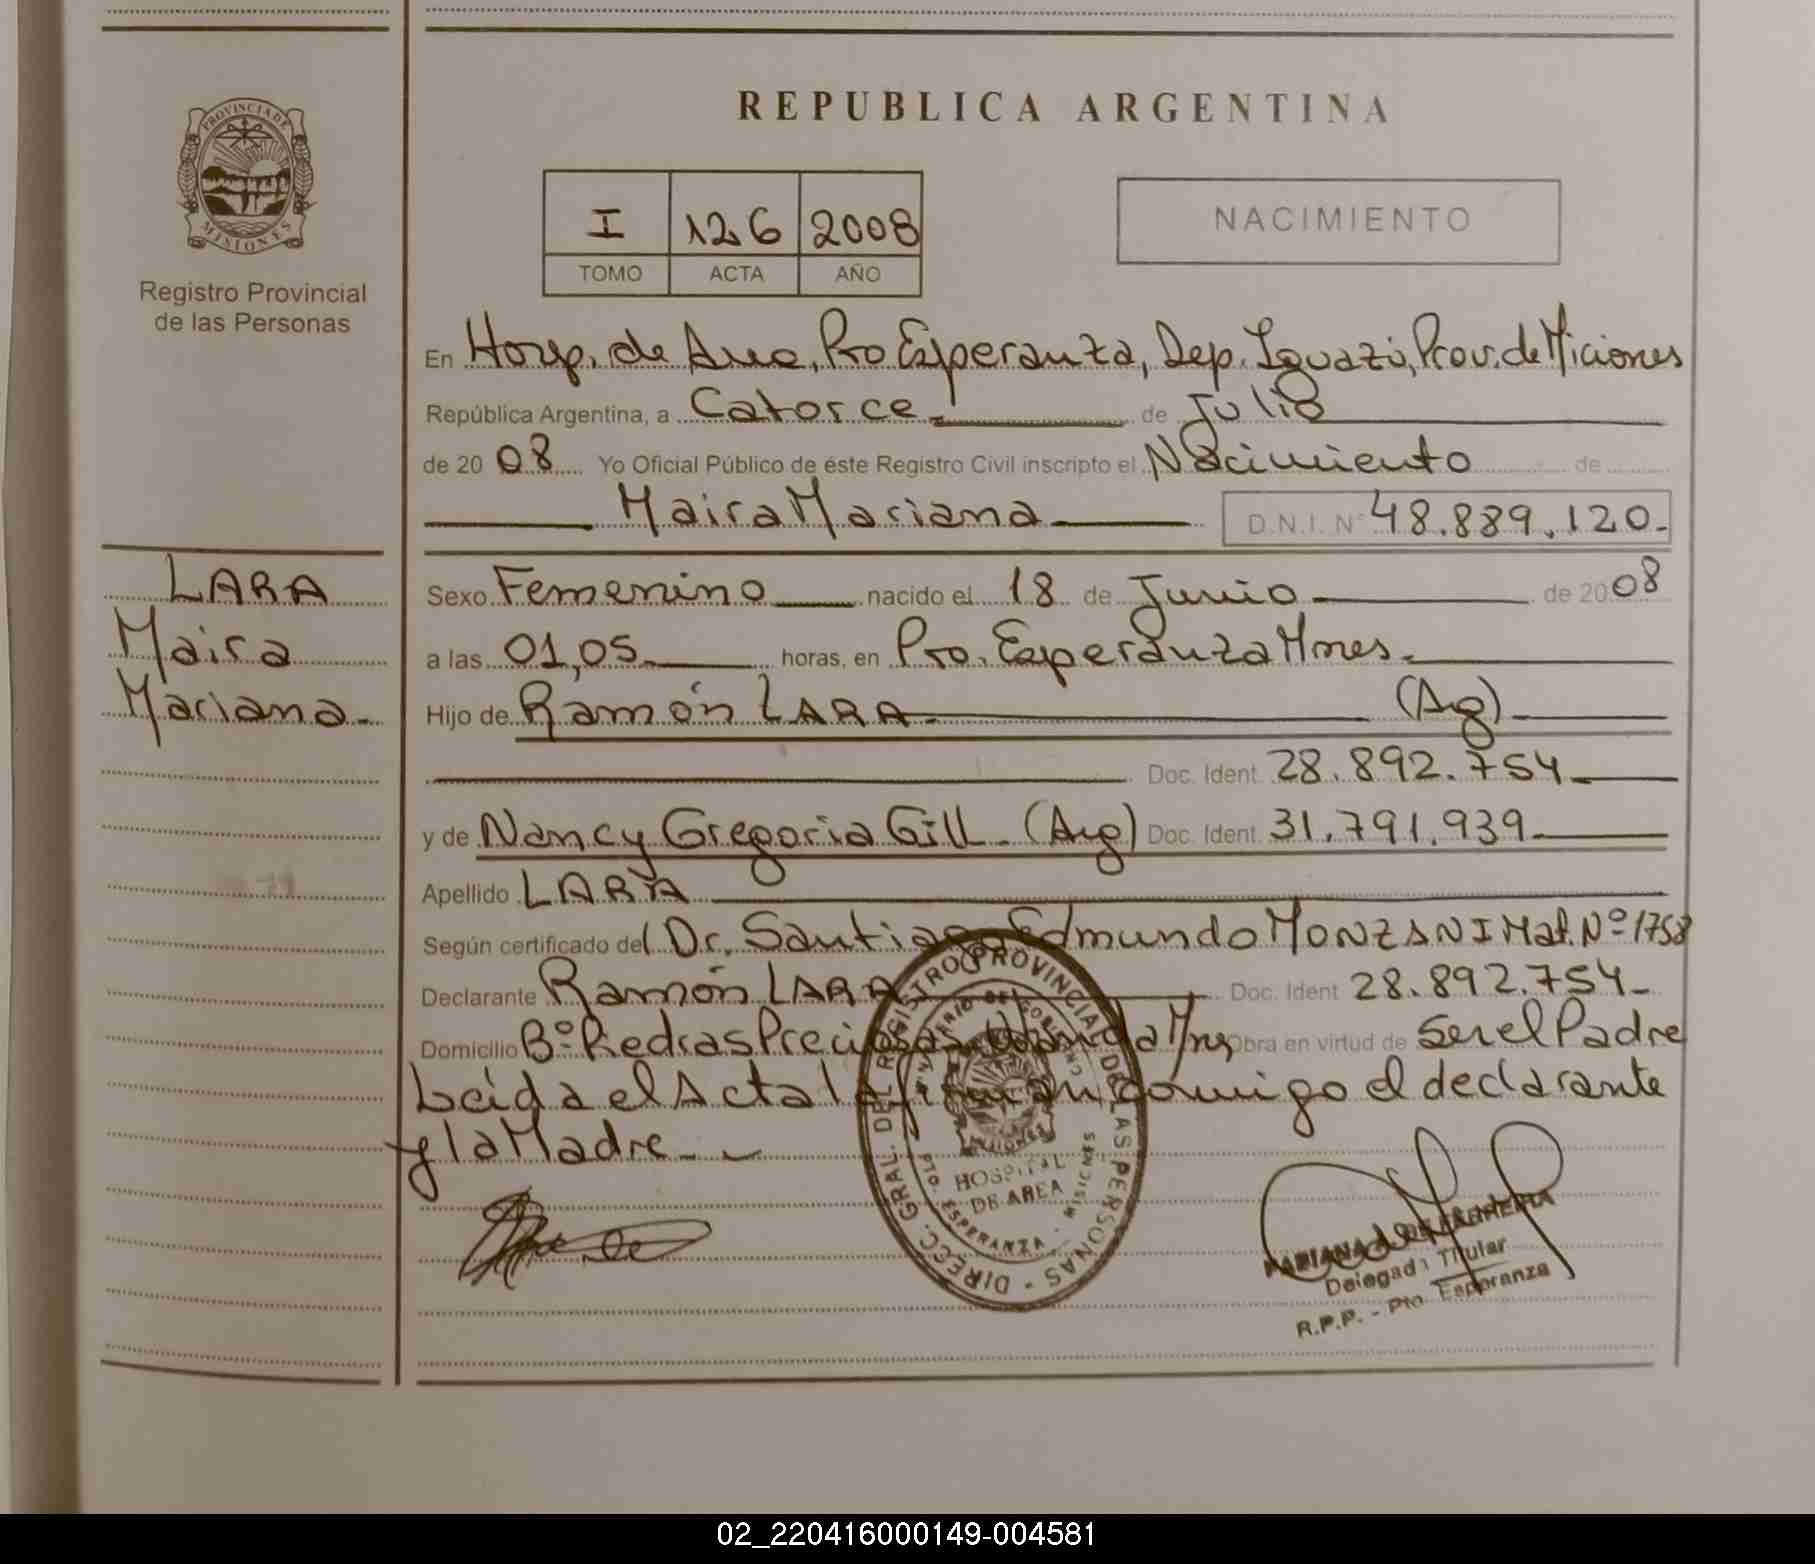 REPUBLICA ARGENTINA
PROVINCIA DE
MISIONES
Registro Provincial
de las Personas
I 126 2008
TOMO ACTA AÑO
NACIMIENTO
En Hosp. de Area, Pto Esperanza, Dep. Iguazú, Prov. de Miciones
República Argentina, a Catorce de Julio
de 20 08 Yo Oficial Público de éste Registro Civil inscripto el Nacimiento de
Maira Mariana D.N.I. Nº 48.889.120.
LARA
Maira
Mariana
Sexo Femenino nacido el 18 de Junio de 20 08
a las 01,05 horas, en Pto. Esperanza Mnes.
Hijo de Ramón LARA (Arg)
Doc. Ident 28.892.754
y de Nancy Gregoria Gill (Arg) Doc. Ident 31.791.939
Apellido LARA
Según certificado del Dr. Santiago Edmundo MONZANI Mat. Nº 1758
Declarante Ramón LARA Doc. Ident 28.892.754
Domicilio Bº Piedras Preciosas Wanda Mnes Obra en virtud de Ser el Padre
Leída el Acta la firman conmigo el declarante
y la Madre
DIRECC. GRAL. DEL REGISTRO PROVINCIAL DE LAS PERSONAS
MINISTERIO DE GOBIERNO
MISIONES
HOSPITAL
DE AREA
PTO. ESPERANZA - MISIONES
Delegada Titular
R.P.P. - Pto. Esperanza
02_220416000149-004581